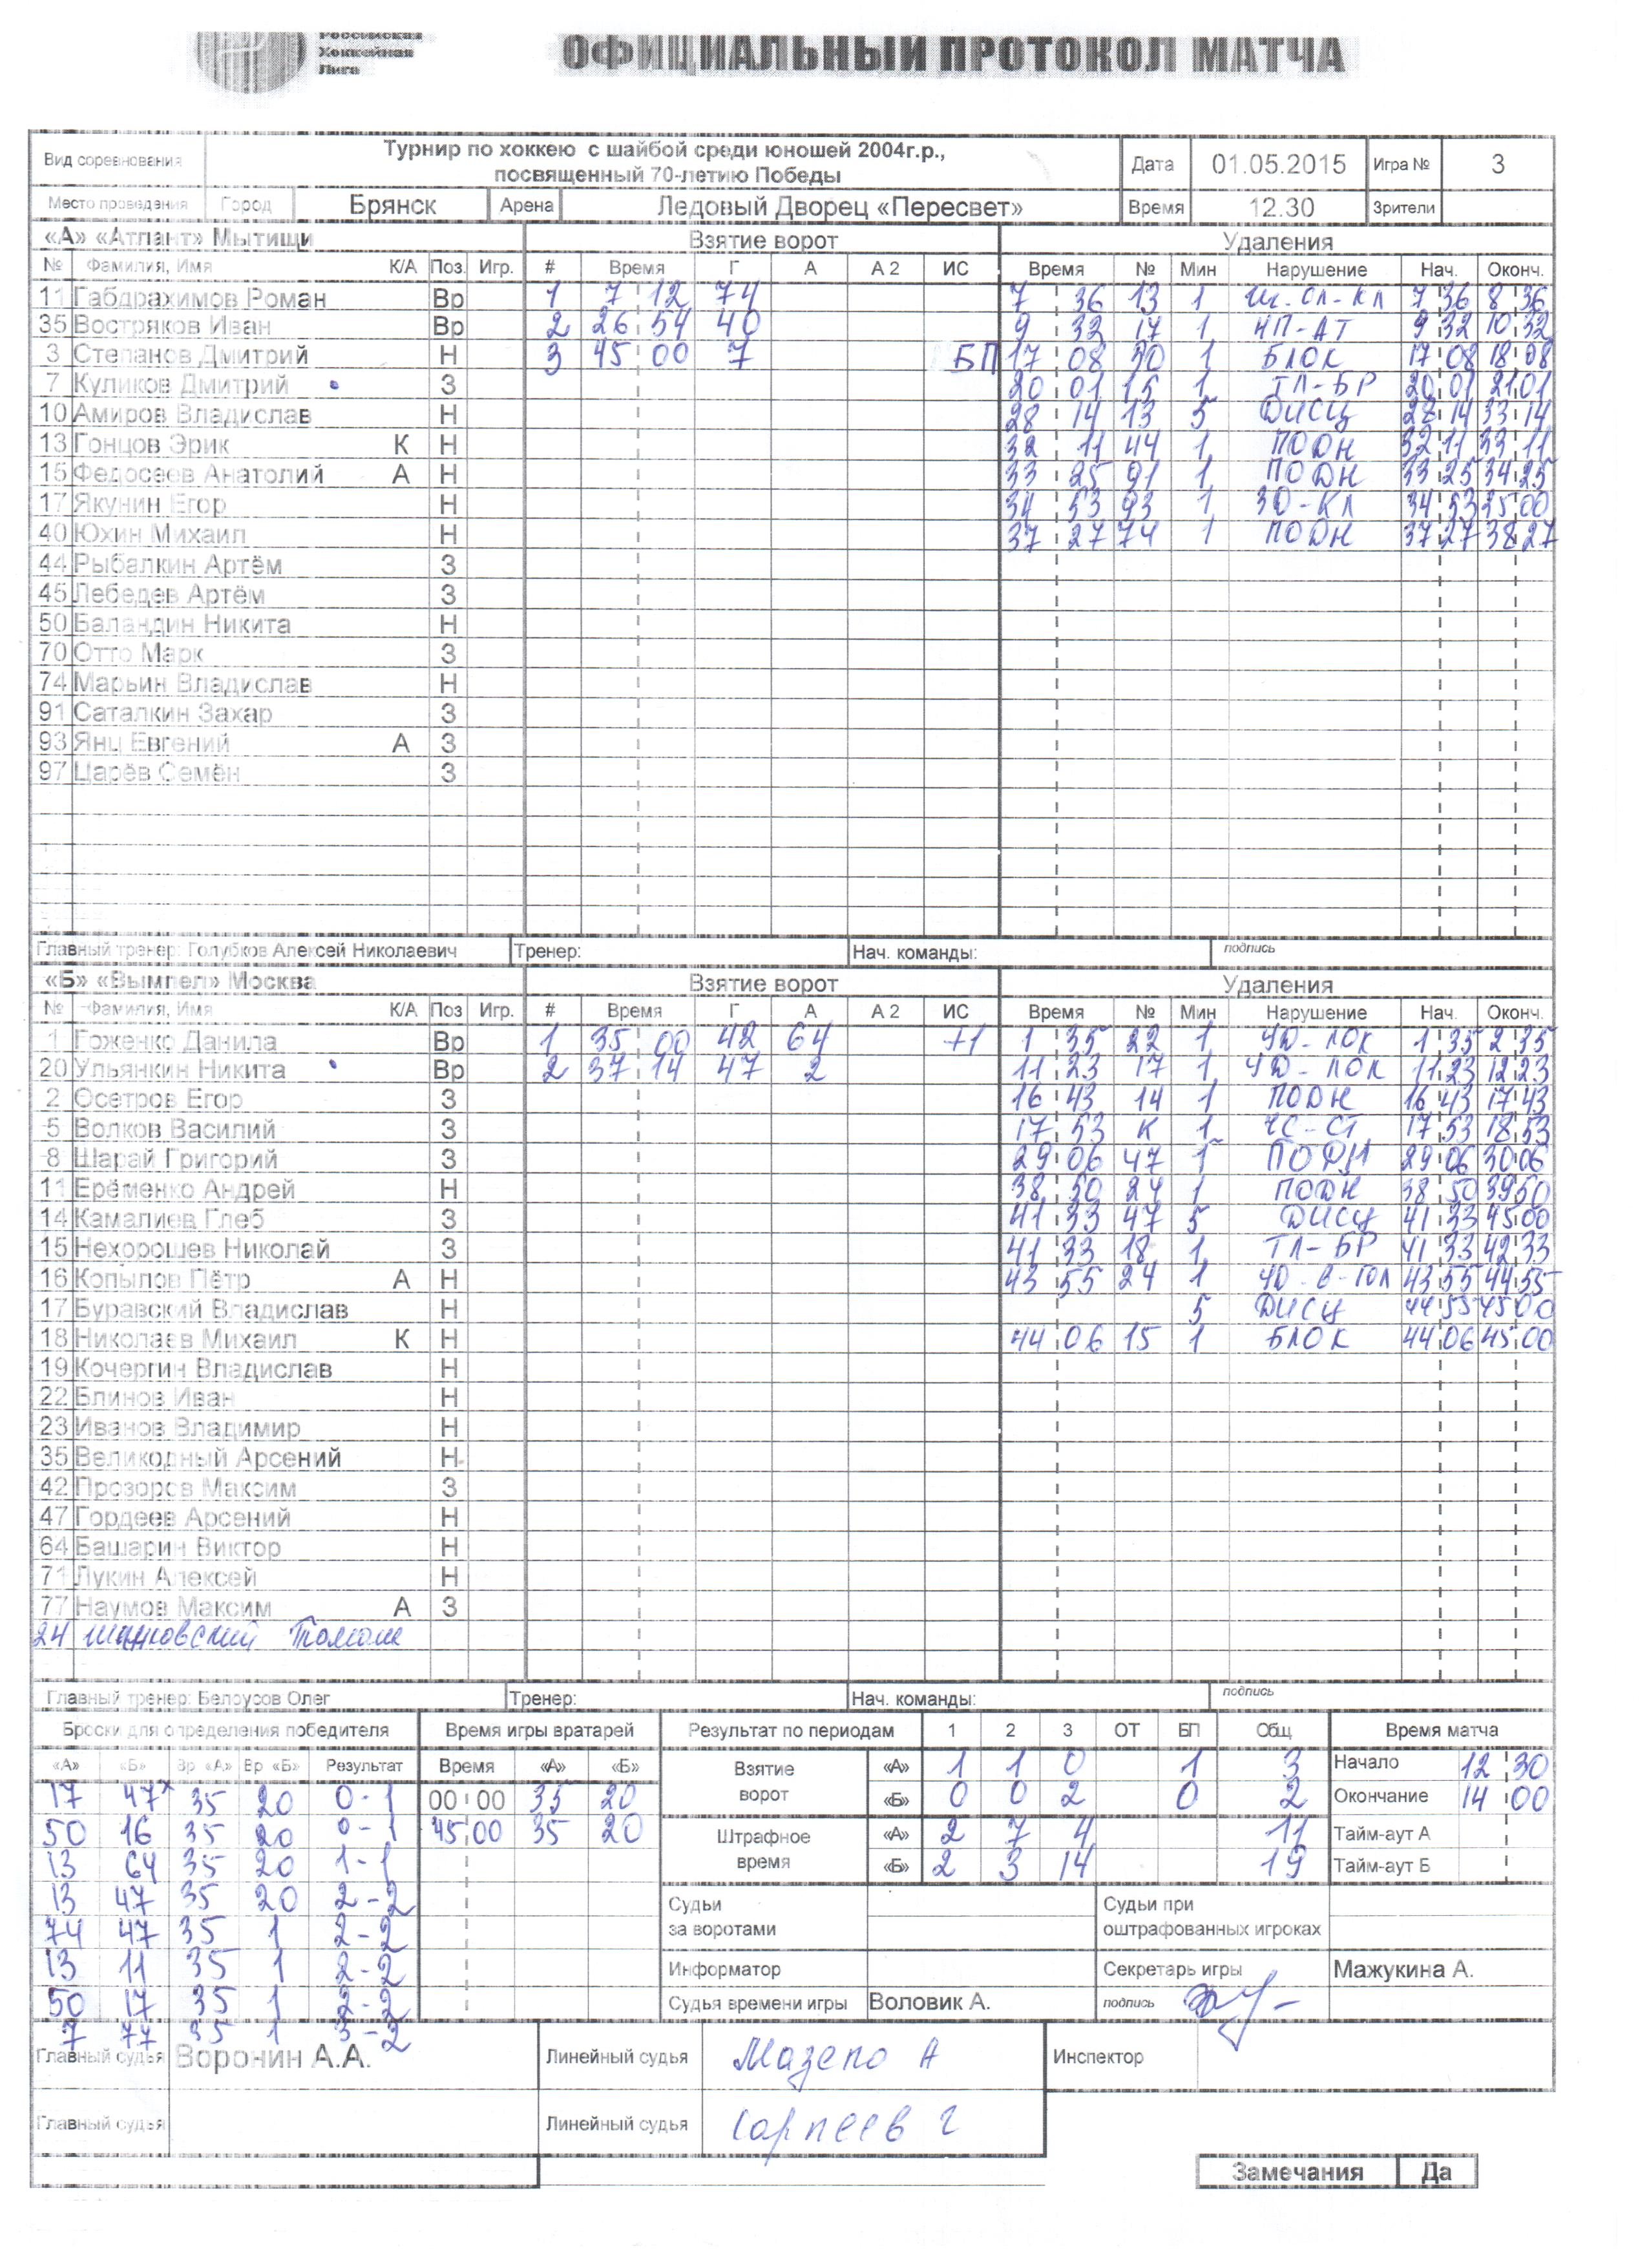 Российская
Хоккейная
Лига
ОФИЦИАЛЬНЫЙ ПРОТОКОЛ МАТЧА
Вид соревнования Турнир по хоккею с шайбой среди юношей 2004г.р., посвященный 70-летию Победы Дата 01.05.2015 Игра № 3
Место проведения Город Брянск Арена Ледовый Дворец «Пересвет» Время 12.30 Зрители
«А» «Атлант» Мытищи Взятие ворот Удаления
№ Фамилия, Имя К/А Поз. Игр. # Время Г А А 2 ИС Время № Мин Нарушение Нач. Оконч.
11 Габдрахимов Роман Вр 1 7 12 74 7 36 13 1 7 36 8 36
35 Востряков Иван Вр 2 26 54 40 9 32 17 1 НП-АТ 9 32 10 32
3 Степанов Дмитрий Н 3 45 00 7 БП 17 08 50 1 БЛОК 17 08 18 08
7 Куликов Дмитрий З 20 01 15 1 ТЛ-БР 20 01 21 01
10 Амиров Владислав Н 28 14 13 5 ДИСЦ 28 14 33 14
13 Гонцов Эрик К Н 32 11 44 1 ПОДН 32 11 33 11
15 Федосеев Анатолий А Н 33 25 91 1 ПОДН 33 25 34 25
17 Якунин Егор Н 34 53 93 1 ЗД-КЛ 34 53 35 00
40 Юхин Михаил Н 37 27 74 1 ПОДН 37 27 38 27
44 Рыбалкин Артём З
45 Лебедев Артём З
50 Баландин Никита Н
70 Отто Марк З
74 Марьин Владислав Н
91 Саталкин Захар З
93 Янц Евгений А З
97 Царёв Семён З
Главный тренер: Голубков Алексей Николаевич Тренер: Нач. команды: подпись
«Б» «Вымпел» Москва Взятие ворот Удаления
№ Фамилия, Имя К/А Поз Игр. # Время Г А А 2 ИС Время № Мин Нарушение Нач. Оконч.
1 Гоженко Данила Вр 1 35 00 42 64 +1 1 35 22 1 1 35 2 35
20 Ульянкин Никита Вр 2 37 14 47 2 11 23 17 1 11 23 12 23
2 Осетров Егор З 16 43 14 1 ПОДН 16 43 17 43
5 Волков Василий З 17 53 К 1 ЧС-СТ 17 53 18 53
8 Шарай Григорий З 29 06 47 1 ПОДН 29 06 30 06
11 Ерёменко Андрей Н 38 50 24 1 ПОДН 38 50 39 50
14 Камалиев Глеб З 41 33 47 5 ДИСЦ 41 33 45 00
15 Нехорошев Николай З 41 33 18 1 ТЛ-БР 41 33 42 33
16 Копылов Пётр А Н 43 55 24 1 43 55 44 55
17 Буравский Владислав Н 5 ДИСЦ 44 55 45 00
18 Николаев Михаил К Н 44 06 15 1 БЛОК 44 06 45 00
19 Кочергин Владислав Н
22 Блинов Иван Н
23 Иванов Владимир Н
35 Великодный Арсений Н
42 Прозоров Максим З
47 Гордеев Арсений Н
64 Башарин Виктор Н
71 Лукин Алексей Н
77 Наумов Максим А З
24
Главный тренер: Белоусов Олег Тренер: Нач. команды: подпись
Броски для определения победителя Время игры вратарей Результат по периодам 1 2 3 ОТ БП Общ Время матча
«А» «Б» Вр «А» Вр «Б» Результат Время «А» «Б» Взятие ворот «А» 1 1 0 1 3 Начало 12 30
17 47* 35 20 0-1 00 00 35 20 «Б» 0 0 2 0 2 Окончание 14 00
50 16 35 20 0-1 45 00 35 20 Штрафное время «А» 2 7 4 11 Тайм-аут А
13 64 35 20 1-1 «Б» 2 3 14 19 Тайм-аут Б
13 47 35 20 2-2 Судьи за воротами Судьи при оштрафованных игроках
74 47 35 1 2-2
13 11 35 1 2-2 Информатор Секретарь игры Мажукина А.
50 17 35 1 2-2 Судья времени игры Воловик А. подпись
7 77 35 1 3-2
Главный судья Воронин А.А. Линейный судья Мазепо А Инспектор
Главный судья Линейный судья Сергеев Г
Замечания Да